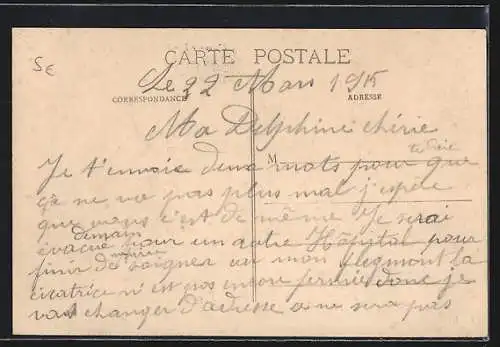 5€
CARTE POSTALE
Le 22 Mars 1915
CORRESPONDANCE
ADRESSE
Ma Delphine chérie
te dire
Je t'envoie deux mots pour que
M
ça ne va pas plus mal j'espère
que vous c'est de même Je serai
demain
évacué pour un autre Hôpital pour
finir de soigner mon flegmont la
cicatrice n'est pas encore fermée donc je
vais changer d'adresse ce ne sera pas